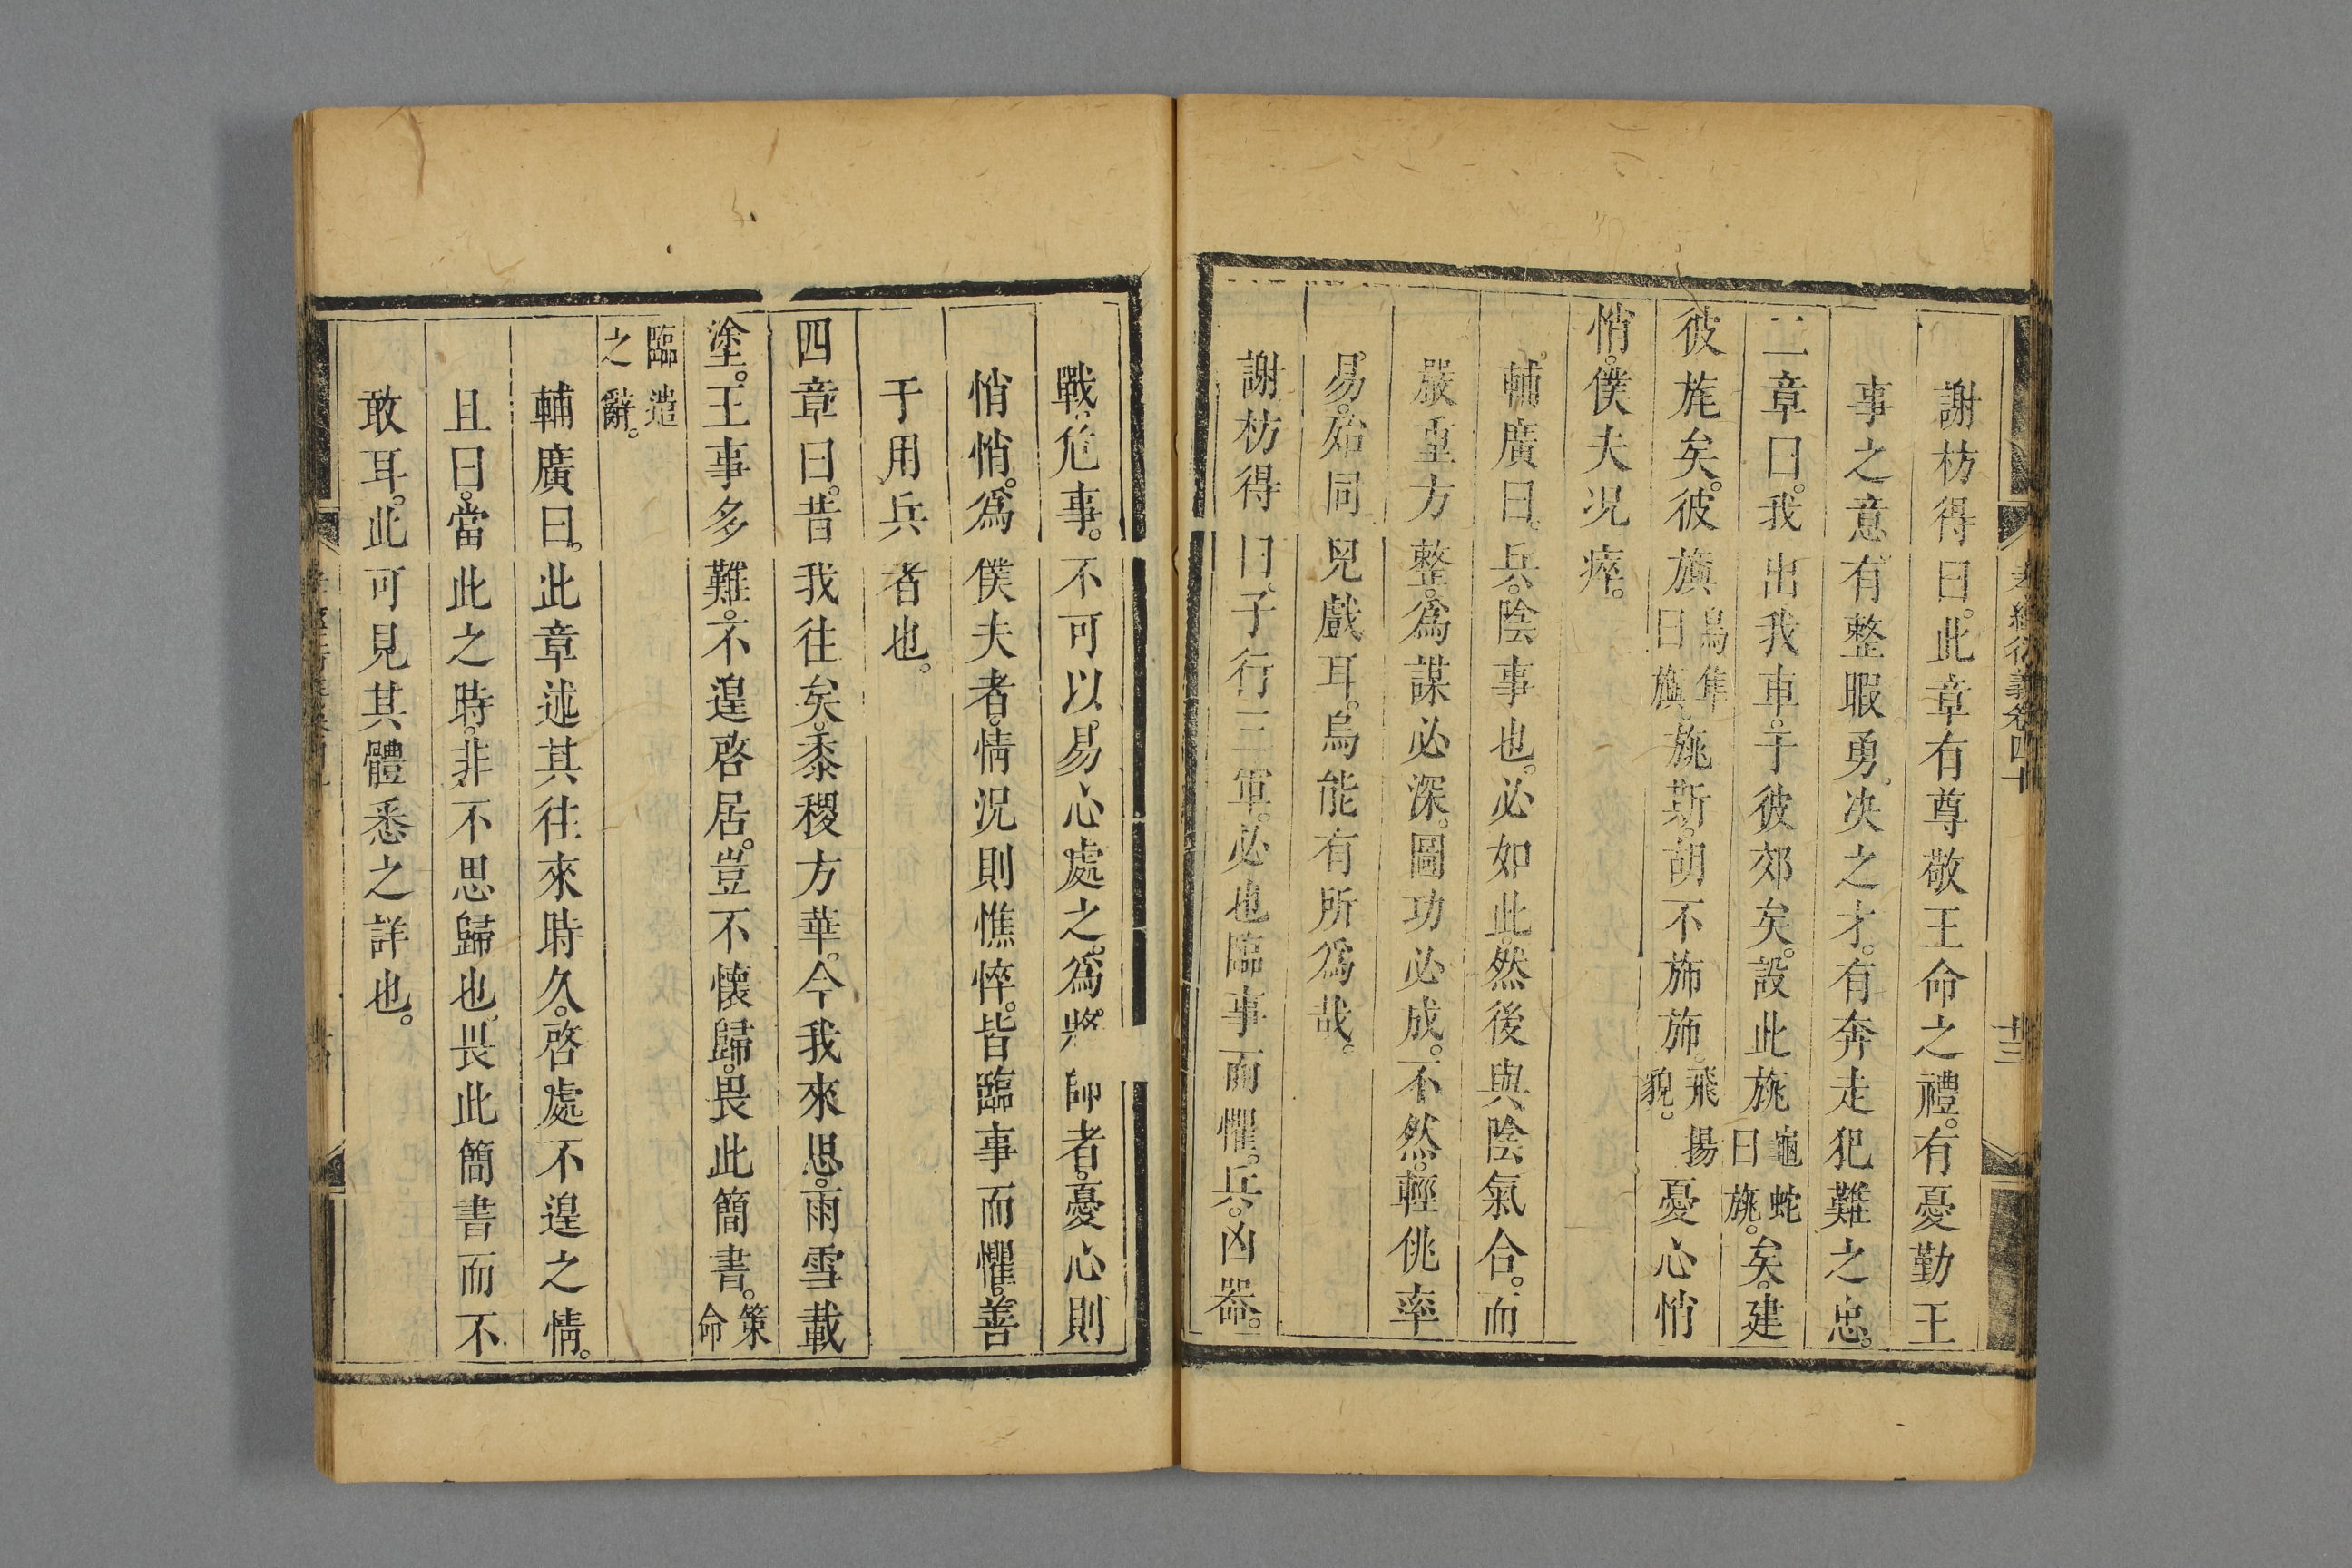 謝枋得曰。此章有尊敬王命之禮。有憂勤王
事之意。有整暇勇決之才。有奔走犯難之忠。
二章曰。我出我車。于彼郊矣。設此旐龜蛇曰旐。矣。建
彼旄矣。彼旟鳥隼曰旟旐斯。胡不旆旆。飛揚貌。憂心悄
悄。僕夫况瘁。
輔廣曰。兵。陰事也。必如此。然後與陰氣合。而
嚴重方整。為謀必深。圖功必成。不然。輕佻率
易。殆同兒戲耳。烏能有所為哉。
謝枋得曰。子行三軍。必也臨事而懼。兵。凶器。
戰。危事。不可以易心處之。為將帥者。憂心則
悄悄。為僕夫者。情況則憔悴。皆臨事而懼。善
于用兵者也。
四章曰。昔我往矣。黍稷方華。今我來思。雨雪載
塗。王事多難。不遑啓居。豈不懷歸。畏此簡書。策命
臨遣之辭。
輔廣曰。此章述其往來時久。啓處不遑之情。
且曰。當此之時。非不思歸也。畏此簡書而不
敢耳。此可見其體悉之詳也。